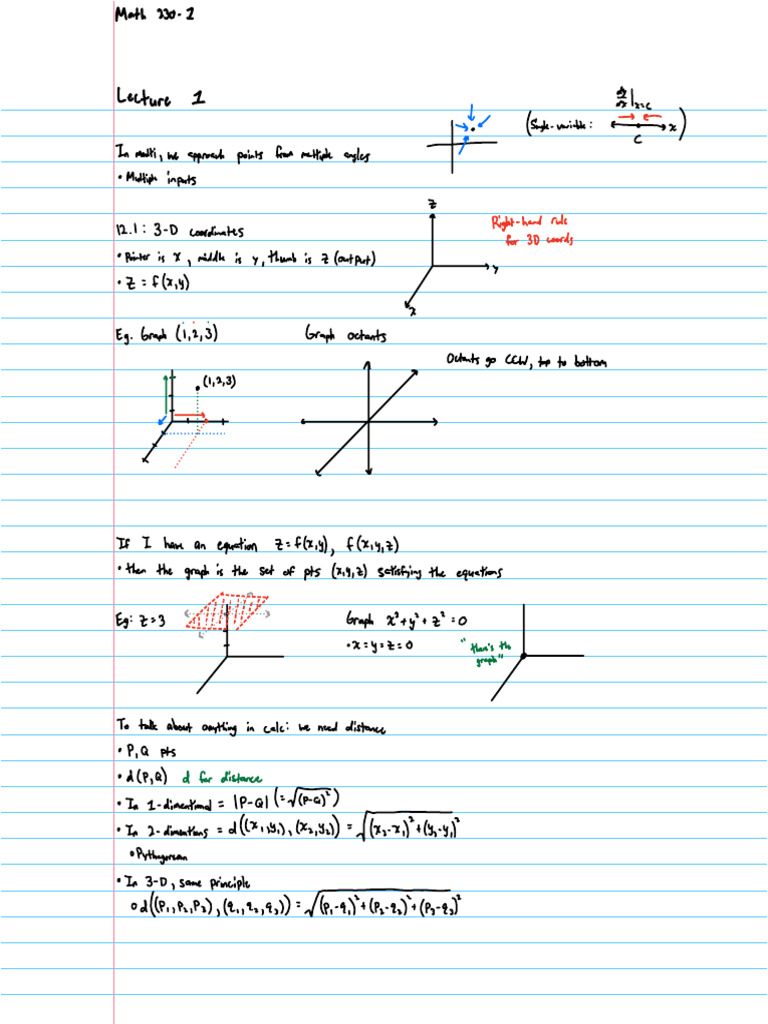 Math 230-2
Lecture 1
dy/dx|x=c
(Single-variable: x)
C
In multi, we approach points from multiple angles
• Multiple inputs
12.1: 3-D coordinates
• Pointer is x, middle is y, thumb is z (output)
• z = f(x,y)
z
y
x
Right-hand rule
for 3D coords
Eg. Graph (1,2,3)
Graph octants
Octants go CCW, top to bottom
(1,2,3)
If I have an equation z=f(x,y), f(x,y,z)
• then the graph is the set of pts (x,y,z) satisfying the equations
Eg: z=3
Graph x²+y²+z²=0
• x=y=z=0
"there's the
graph"
To talk about anything in calc: we need distance
• P,Q pts
• d(P,Q) d for distance
• In 1-dimentional = |P-Q| (=√(P-Q)²)
• In 2-dimentions = d((x₁,y₁), (x₂,y₂)) = √(x₂-x₁)²+(y₂-y₁)²
• Pythagorean
• In 3-D, same principle
o d((p₁,p₂,p₃), (q₁,q₂,q₃)) = √(p₁-q₁)²+(p₂-q₂)²+(p₃-q₃)²